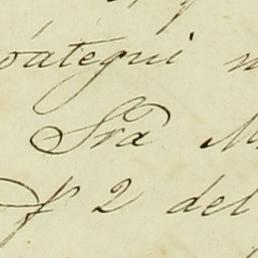 oátegui
Sra M
f 2 del